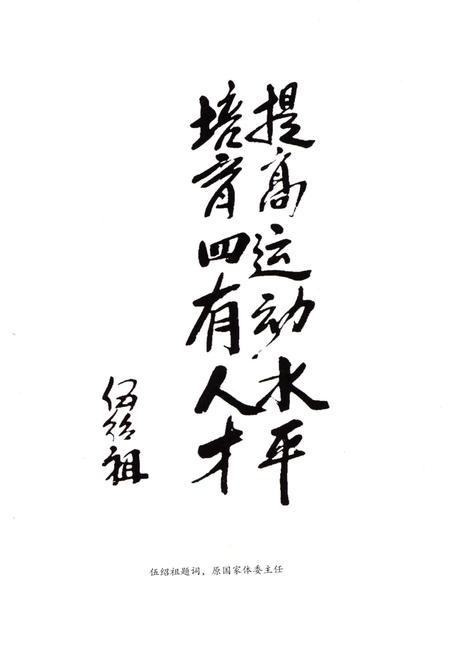 提高运动水平
培育四有人才
伍绍祖
伍绍祖题词，原国家体委主任